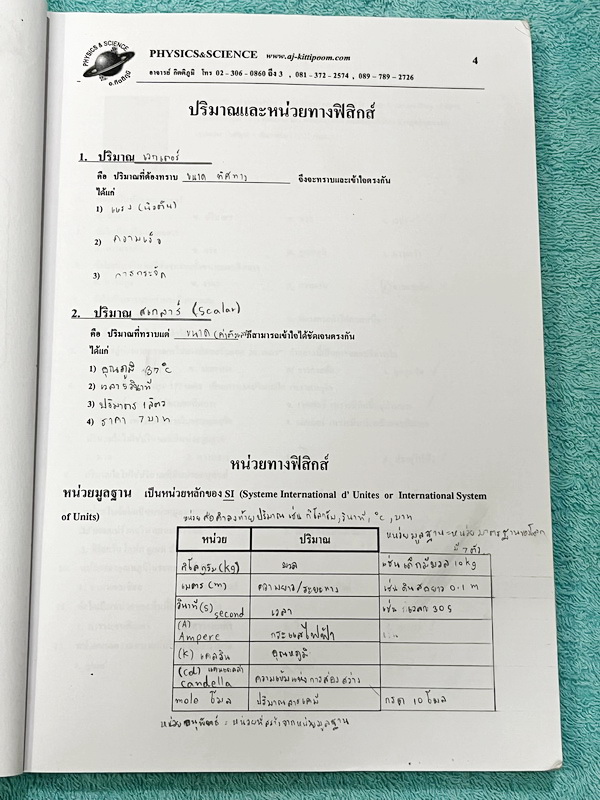 PHYSICS & SCIENCE
อ.กิตติภูมิ
PHYSICS&SCIENCE www.aj-kittipoom.com
4
อาจารย์ กิตติภูมิ โทร 02 - 306 - 0860 ถึง 3 , 081 - 372 - 2574 , 089 - 789 - 2726
ปริมาณและหน่วยทางฟิสิกส์
1. ปริมาณ เวกเตอร์
คือ ปริมาณที่ต้องทราบ ขนาด ทิศทาง จึงจะทราบและเข้าใจตรงกัน
ได้แก่
1) แรง (นิวตัน)
2) ความเร็ว
3) การกระจัด
2. ปริมาณ สเกลาร์ (Scalar)
คือ ปริมาณที่ทราบแต่ ขนาด ก็สามารถเข้าใจได้ชัดเจนตรงกัน
ได้แก่
1) อุณภูมิ 37°c
2) เวลา 5 วินาที
3) ปริมาตร 1 ลิตร
4) ราคา 7 บาท
หน่วยทางฟิสิกส์
หน่วยมูลฐาน เป็นหน่วยหลักของ SI (Systeme International d' Unites or International System
of Units)
หน่วย คือคำลงท้ายปริมาณ เช่น กิโลกรัม, วินาที, °c, บาท
หน่วยมูลฐาน=หน่วยมาตรฐานของโลก
มี 7 ตัว
หน่วย ปริมาณ
กิโลกรัม (kg) มวล เช่น เด็กมีมวล 10 kg
เมตร (m) ความยาว/ระยะทาง เช่น ดินสอยาว 0.1 m
วินาที (s) second เวลา เช่น ระเวลา 30 s
(A) Ampere กระแสไฟฟ้า
(K) เคลวิน อุณหภูมิ
(cd) แคนเดลลา candella ความเข้มแห่งการส่องสว่าง
mole โมล ปริมาณสารเคมี กรด 10 โมล
หน่วย อนุพัทธ์ = หน่วยที่ลงตัวจากหน่วยมูลฐาน